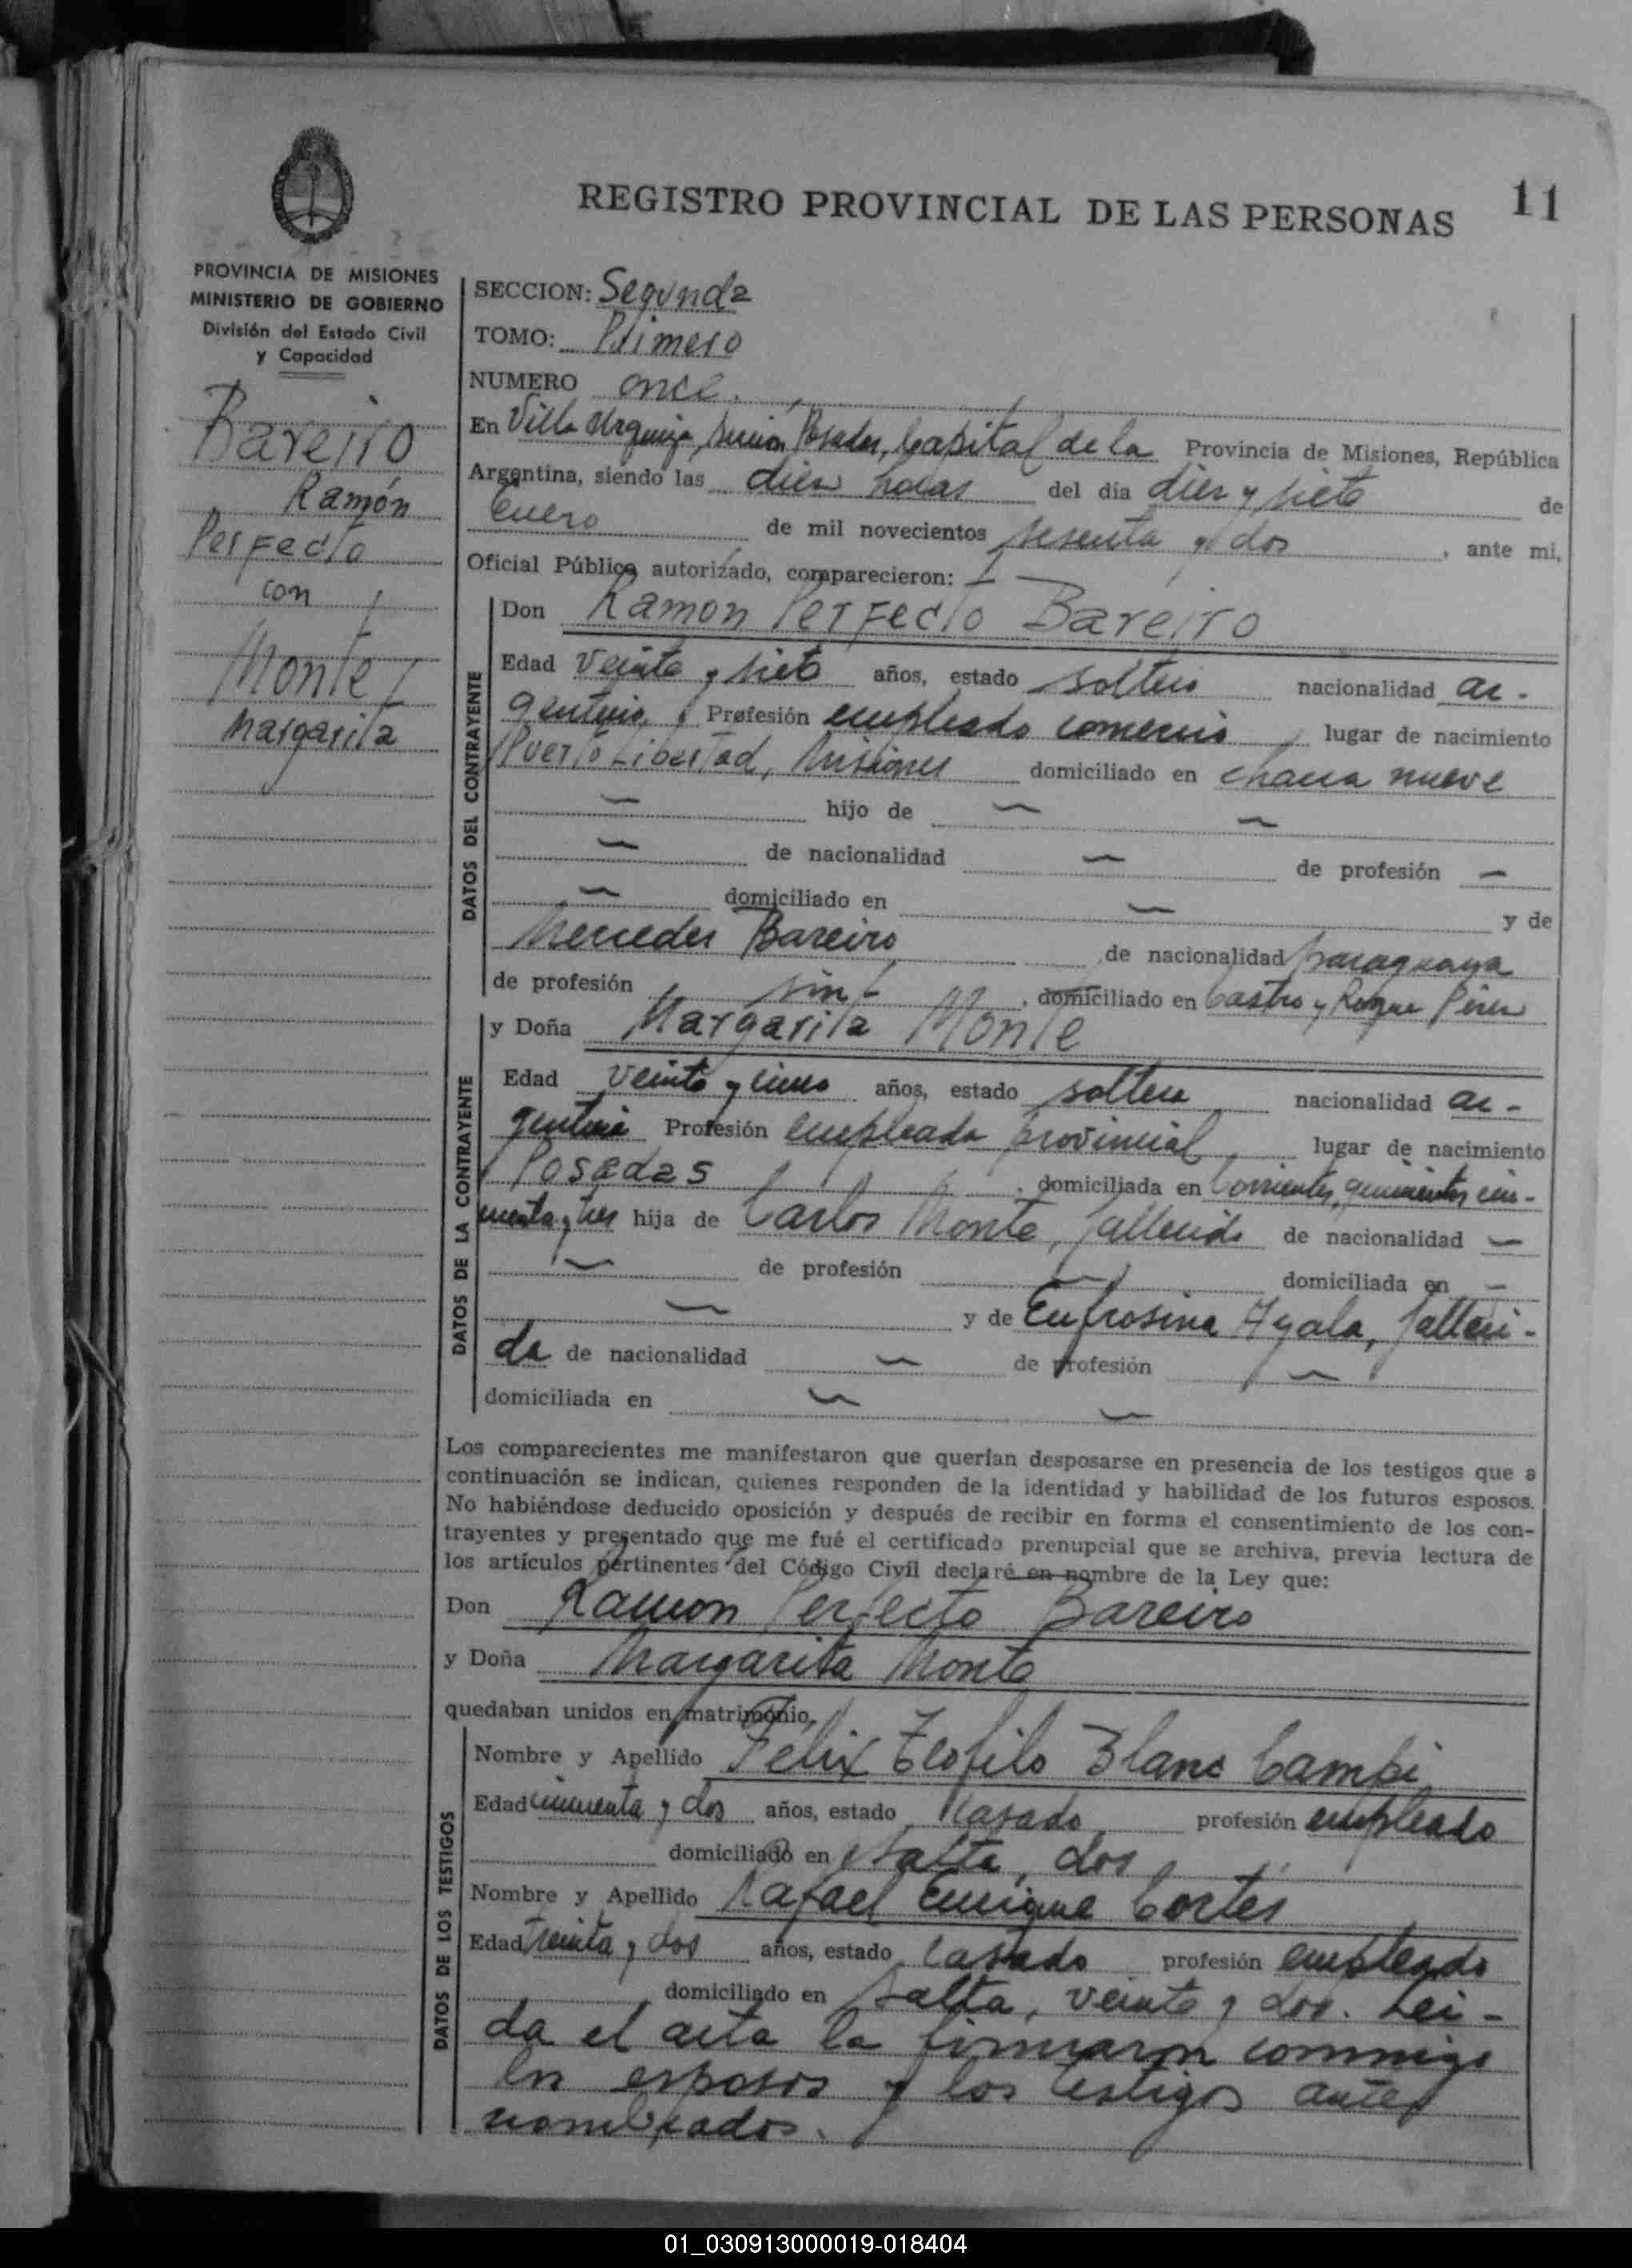 REGISTRO PROVINCIAL DE LAS PERSONAS
11
PROVINCIA DE MISIONES
MINISTERIO DE GOBIERNO
División del Estado Civil
y Capacidad
Bareiro
Ramón
Perfecto
con
Monte
Margarita
SECCION: Segunda
TOMO: Primero
NUMERO once.
En Villa Urquiza, Posadas, Capital de la Provincia de Misiones, República
Argentina, siendo las diez horas del día diez y siete de
Enero de mil novecientos sesenta y dos, ante mi,
Oficial Público autorizado, comparecieron:
DATOS DEL CONTRAYENTE
Don Ramón Perfecto Bareiro
Edad veinte y siete años, estado soltero nacionalidad ar-
gentino, Profesión empleado comercio, lugar de nacimiento
Puerto Libertad, Misiones domiciliado en chacra nueve
— hijo de — —
— de nacionalidad — de profesión —
— domiciliado en — y de
Mercedes Bareiro de nacionalidad paraguaya
de profesión sin, domiciliado en Castro y Roque Pérez
DATOS DE LA CONTRAYENTE
y Doña Margarita Monte
Edad veinte y cinco años, estado soltera nacionalidad ar-
gentina Profesión empleada provincial, lugar de nacimiento
Posadas, domiciliada en Corrientes, quinientos cin-
cuenta y tres hija de Carlos Monte, fallecido de nacionalidad —
— de profesión — domiciliada en —
— y de Eufrosina Ayala, falleci-
da de nacionalidad — de profesión —
domiciliada en — —
Los comparecientes me manifestaron que querían desposarse en presencia de los testigos que a
continuación se indican, quienes responden de la identidad y habilidad de los futuros esposos.
No habiéndose deducido oposición y después de recibir en forma el consentimiento de los con-
trayentes y presentado que me fué el certificado prenupcial que se archiva, previa lectura de
los artículos pertinentes del Código Civil declaré en nombre de la Ley que:
Don Ramon Perfecto Bareiro
y Doña Margarita Monte
quedaban unidos en matrimonio,
DATOS DE LOS TESTIGOS
Nombre y Apellido Felix Teofilo Blanc Campi,
Edad cincuenta y dos años, estado casado, profesión empleado
domiciliado en Salta, dos,
Nombre y Apellido Rafael Enrique Cortes
Edad treinta y dos años, estado casado profesión empleado
domiciliado en Salta, veinte y dos. Lei-
da el acta la firmaron conmigo
los esposos y los testigos antes
nombrados.
01_030913000019-018404